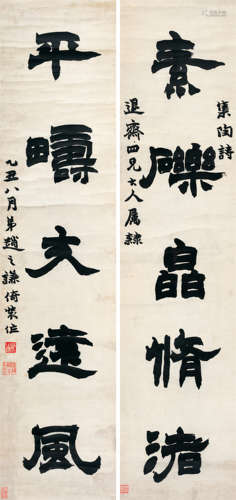 集陶詩
素礫皛脩渚
退齋四兄大人屬隸
平疇交遠風
乙丑八月弟趙之謙倚裝作